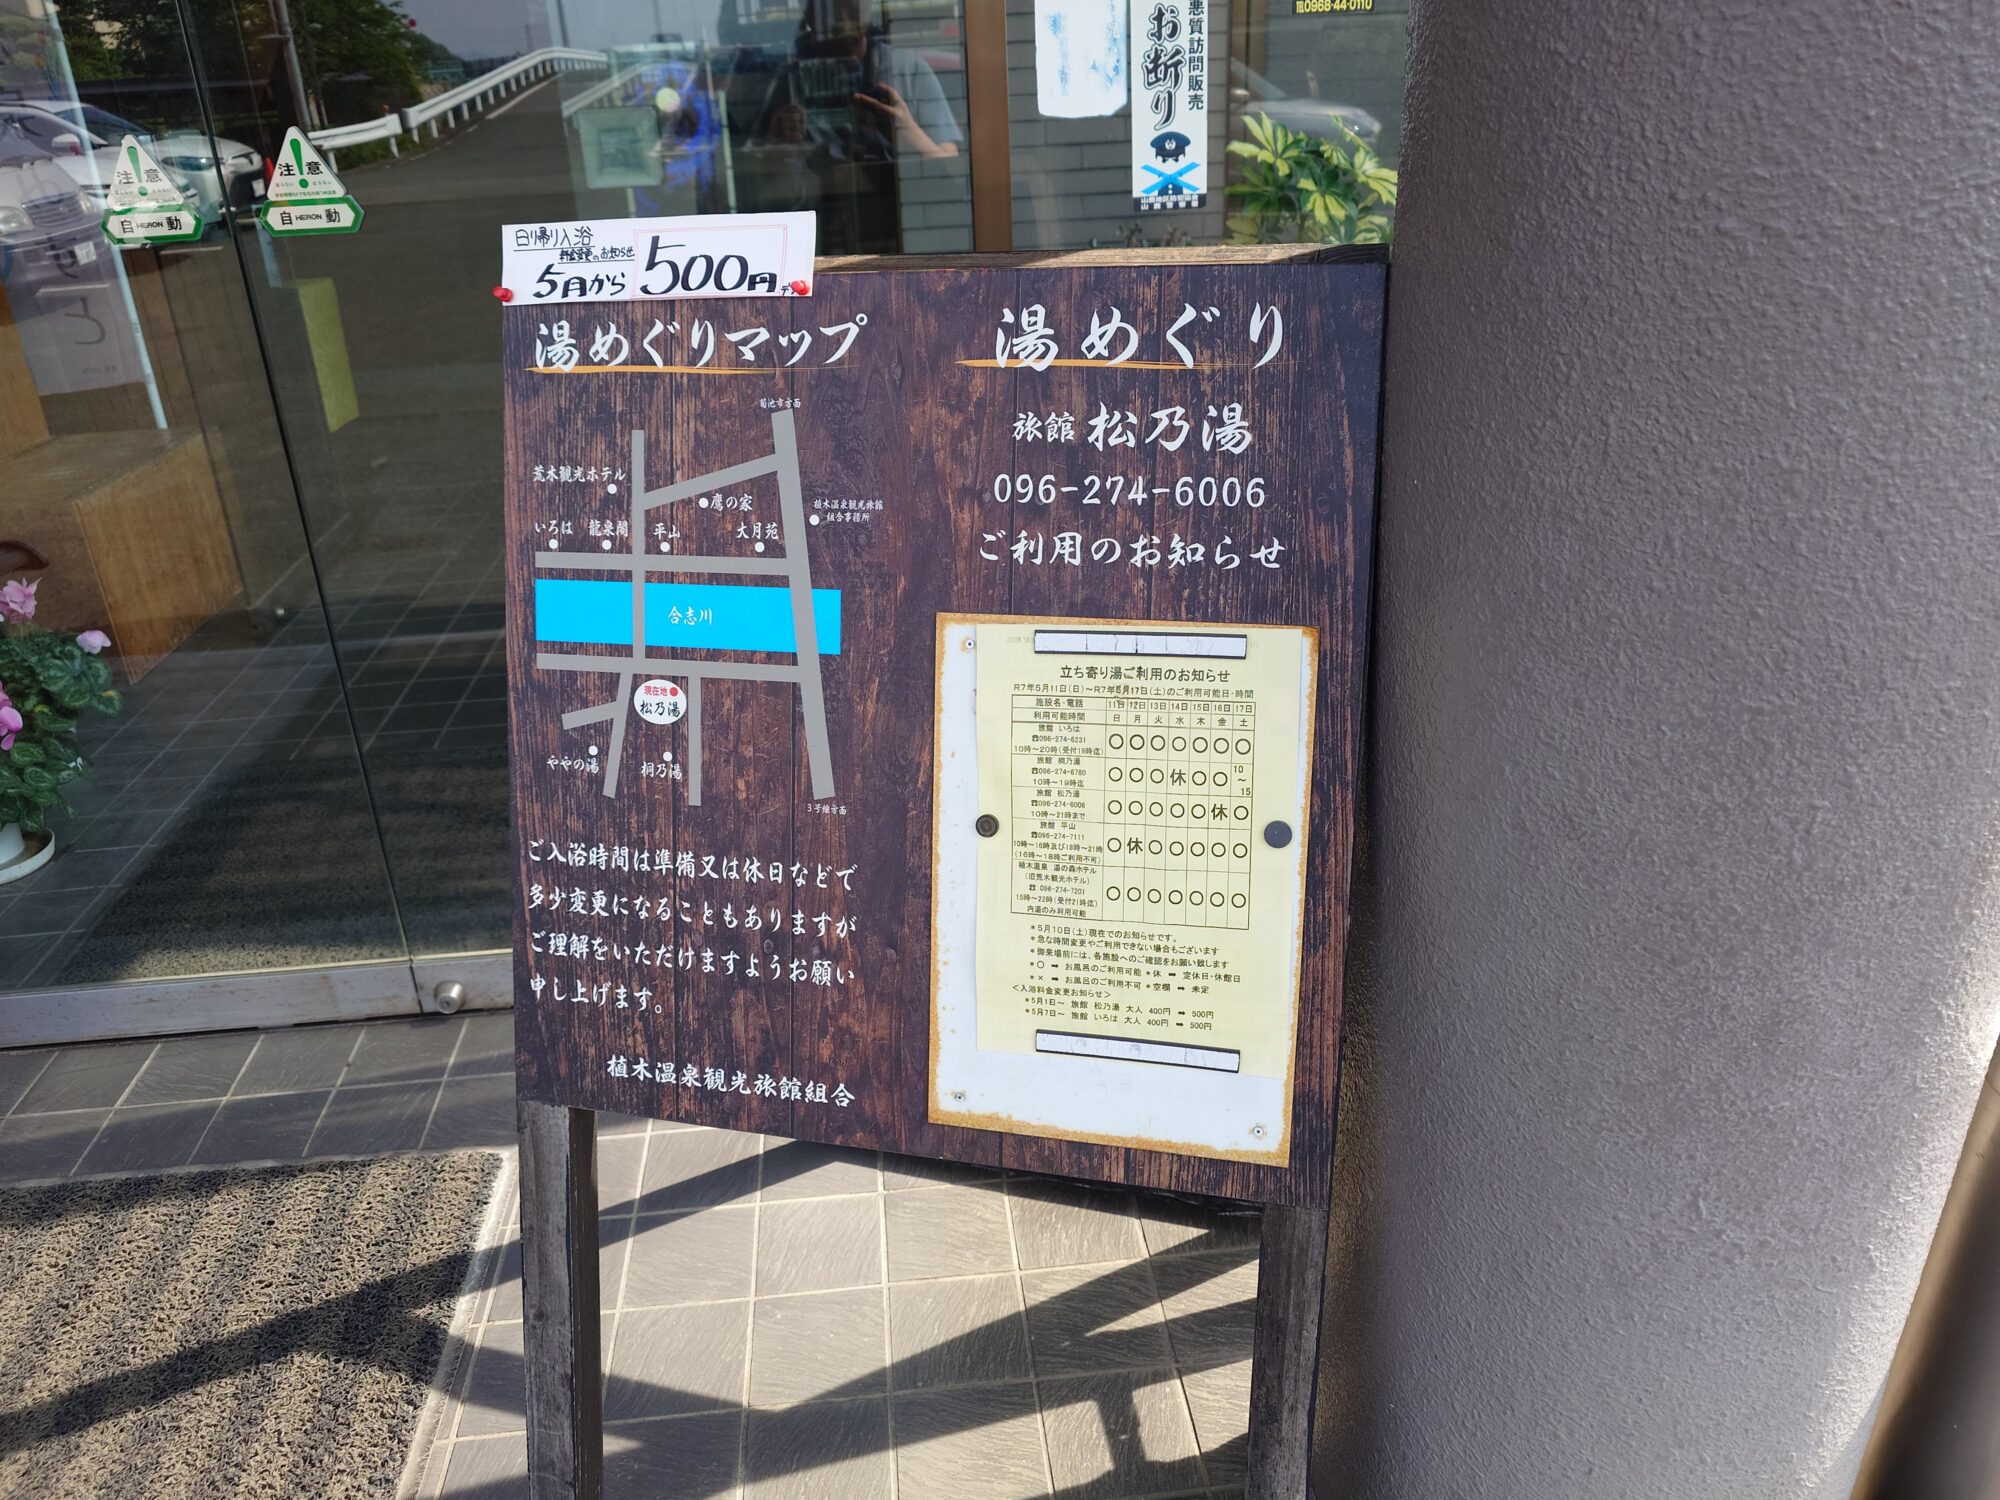 悪質訪問販売
お断り
山鹿警察署
TEL0968-44-0110
注!意
自 HERON 動
注!意
自 HERON 動
日帰り入浴
料金変更のお知らせ
5月から
500円
デス
湯めぐりマップ
菊池市方面
荒木観光ホテル
鷹の家
植木温泉観光旅館
組合事務所
いろは
龍泉閣
平山
大月苑
合志川
現在地
松乃湯
ややの湯
桐乃湯
3号線方面
ご入浴時間は準備又は休日などで
多少変更になることもありますが
ご理解をいただけますようお願い
申し上げます。
植木温泉観光旅館組合
湯めぐり
旅館 松乃湯
096-274-6006
ご利用のお知らせ
立ち寄り湯ご利用のお知らせ
R7年5月11日(日)～R7年5月17日(土)のご利用可能日・時間
施設名・電話 11日 12日 13日 14日 15日 16日 17日
利用可能時間 日 月 火 水 木 金 土
旅館 いろは
☎096-274-6231
10時～20時(受付19時迄)
○ ○ ○ ○ ○ ○ ○
旅館 桐乃湯
☎096-274-6780
10時～19時迄
○ ○ ○ 休 ○ ○ 10～15
旅館 松乃湯
☎096-274-6006
10時～21時まで
○ ○ ○ ○ ○ 休 ○
旅館 平山
☎096-274-7111
10時～16時及び18時～21時
(16時～18時ご利用不可)
○ 休 ○ ○ ○ ○ ○
植木温泉 湯の森ホテル
(旧荒木観光ホテル)
☎ 096-274-7201
15時～22時(受付21時迄)
内湯のみ利用可能
○ ○ ○ ○ ○ ○ ○
*5月10日(土)現在でのお知らせです。
*急な時間変更やご利用できない場合もございます
*御来場前には、各施設へのご確認をお願い致します
*○ ➡ お風呂のご利用可能 *休 ➡ 定休日・休館日
*× ➡ お風呂のご利用不可 *空欄 ➡ 未定
<入浴料金変更お知らせ>
*5月1日～ 旅館 松乃湯 大人 400円 ➡ 500円
*5月7日～ 旅館 いろは 大人 400円 ➡ 500円